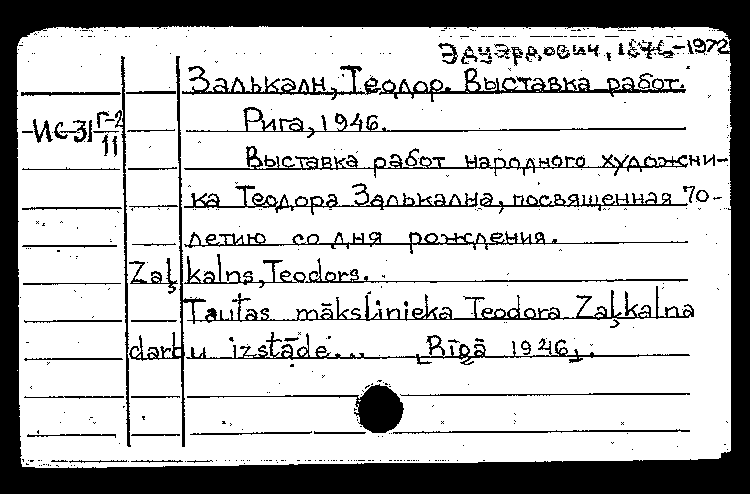 Эдуардович, 1876-1972
Залькалн, Теодор. Выставка работ.
Рига, 1946.
ИС-31 Г-2/11
Выставка работ народного художни-
ка Теодора Залькална, посвященная 70-
летию со дня рождения.
Zaļkalns, Teodors.
Tautas mākslinieka Teodora Zaļkalna
darbu izstāde... [Rīgā 1946].